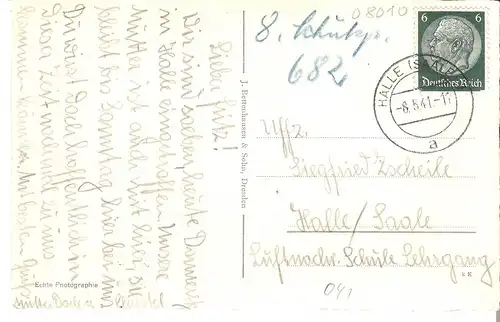 08010
8. Schützp.
682
6 6
Deutsches Reich
HALLE (SAALE)
-8.5.41.-1
a
Uffz.
Siegfried Zscheile
Halle/Saale
Luftnachr. Schule Lehrgang
041
J. Bettenhausen & Sohn, Dresden
Echte Photographie
Lieber Fritz!
Wir sind soeben, heute Donnerstg
in Halle eingetroffen. Unsere
Mutter ist auch mit hier, sie
bleibt bis Sonntag hier bei uns
Du wirst doch hoffentlich in
dieser Zeit mal mit zu uns
kommen können. Mit besten Grüß